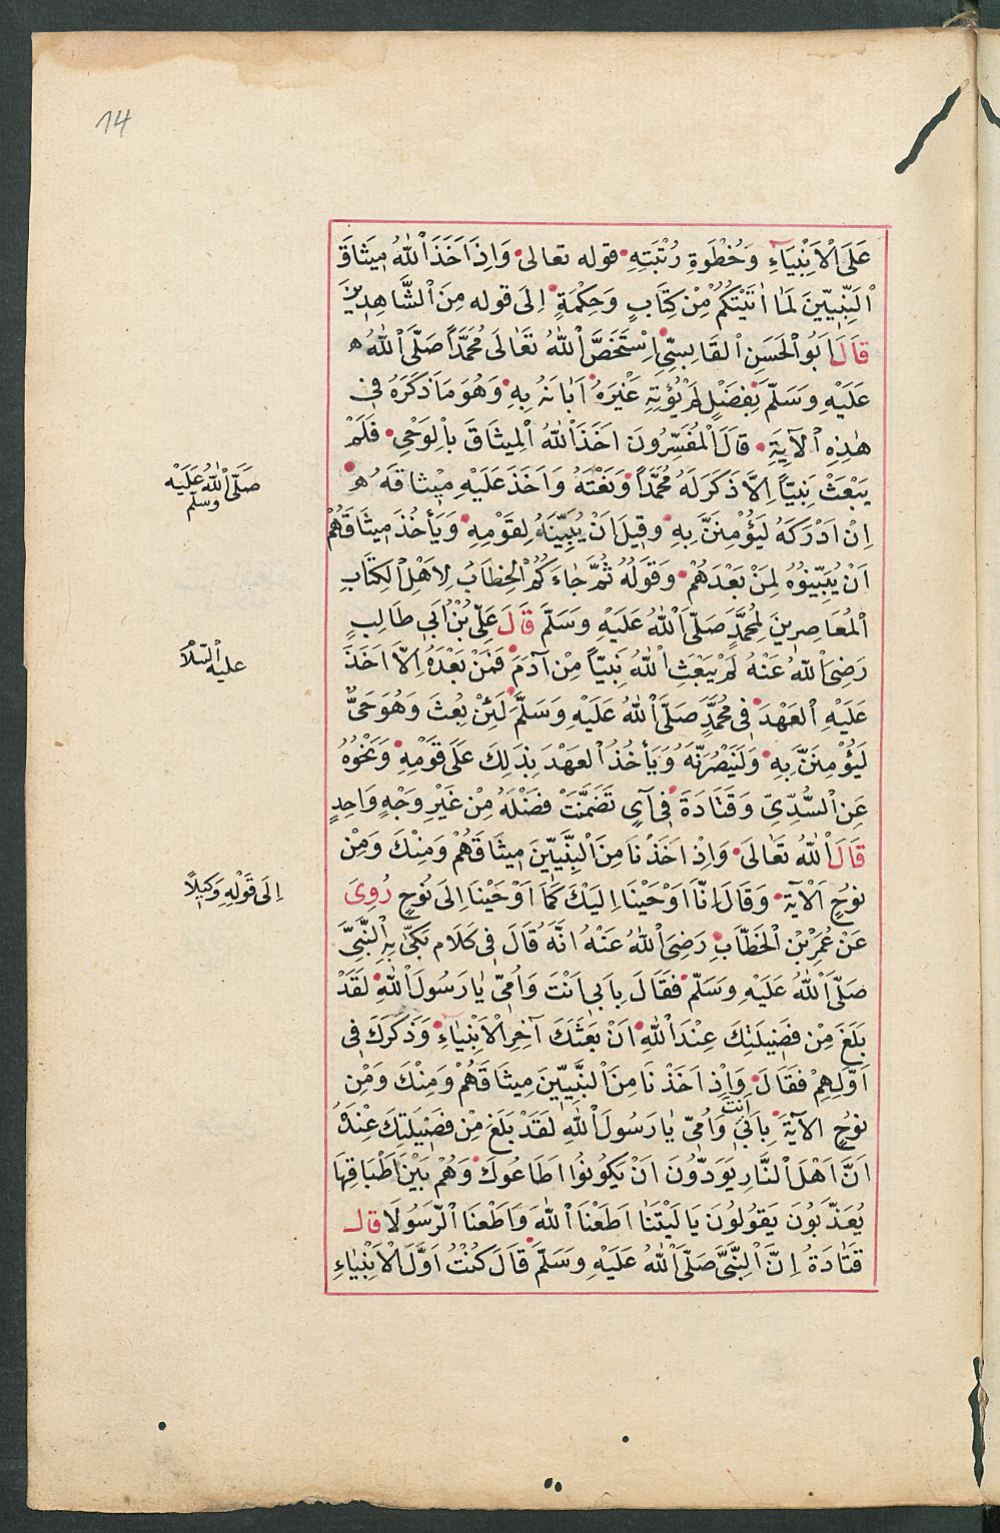 14
عَلَى الْاَنْبِيَاءِ وَحُظْوَةِ رُتْبَتِهِ قوله تعالى وَاِذَ اَخَذَ اللهُ مِيثَاقَ
النَّبِيّينَ لَمَا اٰتَيْتُكُمْ مِنْ كِتَابٍ وَحِكْمَةٍ اِلَى قوله مِنَ الشَّاهِدِينَ
قَالَ اَبُو الْحَسَنِ الْقَابِسِيّ اِسْتَخَصَّ اللهُ تَعَالَى مُحَمَّداً صَلَّى اللهُ
عَلَيْهِ وَسَلَّمَ بِفَضْلٍ لَمْ يُؤْتِهِ غَيْرَهُ اَبَانَهُ بِهِ وَهُوَ مَا ذَكَرَهُ فى
هٰذِهِ الْاٰيَةِ قَالَ الْمُفَسِّرُونَ اَخَذَ اللهُ الْمِيثَاقَ بِالْوَحْىِ فَلَمْ
يَبْعَثْ نَبِيّاً اِلَّا ذَكَرَ لَهُ مُحَمَّداً وَنَعْتَهُ وَاَخَذَ عَلَيْهِ مِيثَاقَهُ
صَلَّى اللهُ عَلَيْهِ وسلم
اِنْ اَدْرَكَهُ لَيُؤْمِنَنَّ بِهِ وقِيلَ اَنْ يُبَيِّنَهُ لِقَوْمِهِ وَيَأْخُذَ مِيثَاقَهُمْ
اَنْ يُبَيِّنُوهُ لِمَنْ بَعْدَهُمْ وَقَوْلُهُ ثُمَّ جَاءَكُمْ الْخِطَابُ لِاَهْلِ الْكِتَابِ
الْمُعَاصِرِينَ لِمُحَمَّدٍ صَلَّى اللهُ عَلَيْهِ وَسَلَّمَ قَالَ عَلِيُّ بْنُ اَبِى طَالِبٍ
رَضِىَ اللهُ عَنْهُ لَمْ يَبْعَثِ اللهُ نَبِيّاً مِنْ آدَمَ فَمَنْ بَعْدَهُ اِلَّا اَخَذَ
عليه السلام
عَلَيْهِ الْعَهْدَ فِى مُحَمَّدٍ صَلَّى اللهُ عَلَيْهِ وَسَلَّمَ لَئِنْ بُعِثَ وَهُوَ حَىٌّ
لَيُؤْمِنَنَّ بِهِ وَلَيَنْصُرَنَّهُ وَيَأْخُذُ الْعَهْدَ بِذَلِكَ عَلَى قَوْمِهِ وَنَحْوُهُ
عَنِ السُّدِّىِّ وَقَتَادَةَ فِى آىٍ تَضَمَّنَتْ فَضْلَهُ مِنْ غَيْرِ وَجْهٍ وَاحِدٍ
قَالَ اللهُ تَعَالَى وَاِذْ اَخَذْنَا مِنَ النَّبِيّينَ مِيثَاقَهُمْ وَمِنْكَ وَمِنْ
نُوحٍ الْآيَةَ وَقَالَ اِنَّا اَوْحَيْنَا اِلَيْكَ كَمَا اَوْحَيْنَا اِلَى نُوحٍ رُوِىَ
اِلَى قَوْلِهِ وَكِيلًا
عَنْ عُمَرَ بْنِ الْخَطَّابِ رَضِىَ اللهُ عَنْهُ اَنَّهُ قَالَ فِى كَلَامٍ بَكَى بِهِ النَّبِىَّ
صَلَّى اللهُ عَلَيْهِ وَسَلَّمَ فَقَالَ بِاَبِى اَنْتَ وَاُمِّى يَا رَسُولَ اللهِ لَقَدْ
بَلَغَ مِنْ فَضِيلَتِكَ عِنْدَ اللهِ اَنْ بَعَثَكَ آخِرَ الْاَنْبِيَاءِ وَذَكَرَكَ فِى
اَوَّلِهِمْ فَقَالَ وَاِذ اَخَذْنَا مِنَ النَّبِيّينَ مِيثَاقَهُمْ وَمِنْكَ وَمِنْ
نُوحٍ الْآيَةَ بِاَبِى اَنْتَ وَاُمِّى يَا رَسُولَ اللهِ لَقَدْ بَلَغَ مِنْ فَضِيلَتِكَ عِنْدَهُ
اَنَّ اَهْلَ النَّارِ يَوَدُّونَ اَنْ يَكُونُوا اَطَاعُوكَ وَهُمْ بَيْنَ اَطْبَاقِهَا
يُعَذَّبُونَ يَقُولُونَ يَا لَيْتَنَا اَطَعْنَا اللهَ وَاَطَعْنَا الرَّسُولَا قال
قَتَادَةُ اِنَّ النَّبِىَّ صَلَّى اللهُ عَلَيْهِ وَسَلَّمَ قَالَ كُنْتُ اَوَّلَ الْاَنْبِيَاءِ